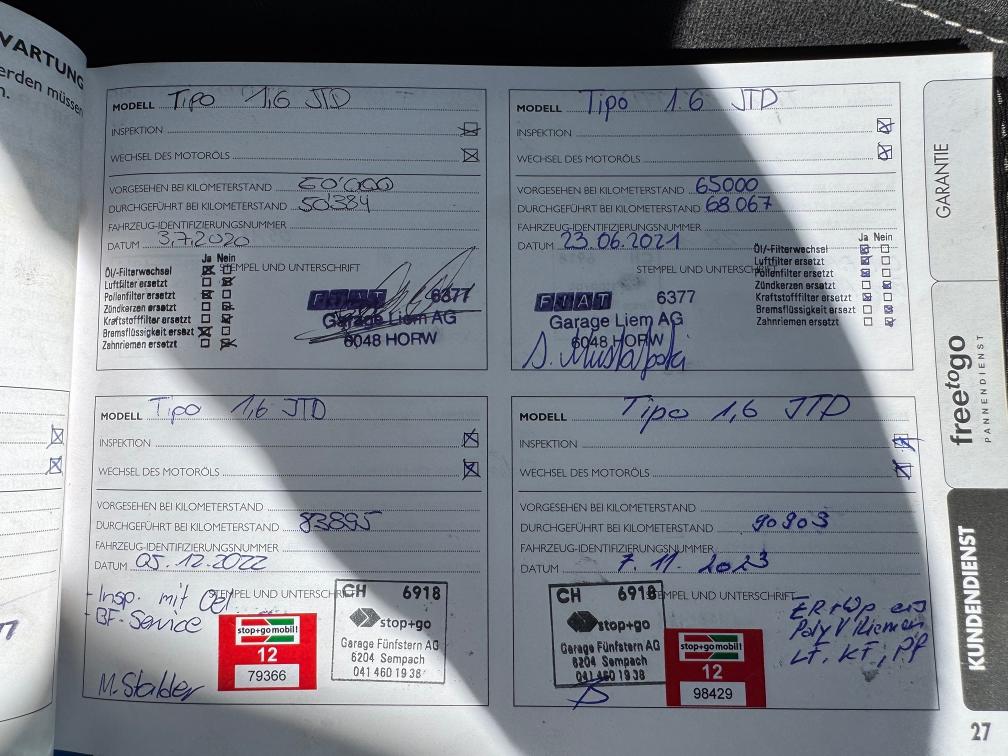 WARTUNG
erden müssen
n.
MODELL Tipo 1,6 JTD
INSPEKTION
WECHSEL DES MOTORÖLS
VORGESEHEN BEI KILOMETERSTAND
DURCHGEFÜHRT BEI KILOMETERSTAND 50'384
FAHRZEUG-IDENTIFIZIERUNGSNUMMER
DATUM 3.7.2020
STEMPEL UND UNTERSCHRIFT
Ja Nein
Öl-/Filterwechsel
Luftfilter ersetzt
Pollenfilter ersetzt
Zündkerzen ersetzt
Kraftstofffilter ersetzt
Bremsflüssigkeit ersetzt
Zahnriemen ersetzt
FIAT 6377
Garage Liem AG
6048 HORW
MODELL Tipo 1.6 JTD
INSPEKTION
WECHSEL DES MOTORÖLS
VORGESEHEN BEI KILOMETERSTAND 65000
DURCHGEFÜHRT BEI KILOMETERSTAND 68067
FAHRZEUG-IDENTIFIZIERUNGSNUMMER
DATUM 23.06.2021
STEMPEL UND UNTERSCHRIFT
Ja Nein
Öl-/Filterwechsel
Luftfilter ersetzt
Pollenfilter ersetzt
Zündkerzen ersetzt
Kraftstofffilter ersetzt
Bremsflüssigkeit ersetzt
Zahnriemen ersetzt
FIAT 6377
Garage Liem AG
6048 HORW
MODELL Tipo 1,6 JTD
INSPEKTION
WECHSEL DES MOTORÖLS
VORGESEHEN BEI KILOMETERSTAND
DURCHGEFÜHRT BEI KILOMETERSTAND 83895
FAHRZEUG-IDENTIFIZIERUNGSNUMMER
DATUM 05.12.2022
STEMPEL UND UNTERSCHRIFT
- Insp. mit Oel
- BF-Service
M. Stalder
stop+go mobil!
12
79366
CH 6918
stop+go
Garage Fünfstern AG
6204 Sempach
041 460 19 38
MODELL Tipo 1,6 JTD
INSPEKTION
WECHSEL DES MOTORÖLS
VORGESEHEN BEI KILOMETERSTAND
DURCHGEFÜHRT BEI KILOMETERSTAND 90903
FAHRZEUG-IDENTIFIZIERUNGSNUMMER
DATUM 7.11.2023
STEMPEL UND UNTERSCHRIFT
CH 6918
stop+go
Garage Fünfstern AG
6204 Sempach
041 460 19 38
stop+go mobil!
12
98429
ZR + Wp ers
Poly V Riemen
LF, KF, PF
GARANTIE
freetogo
PANNENDIENST
KUNDENDIENST
27